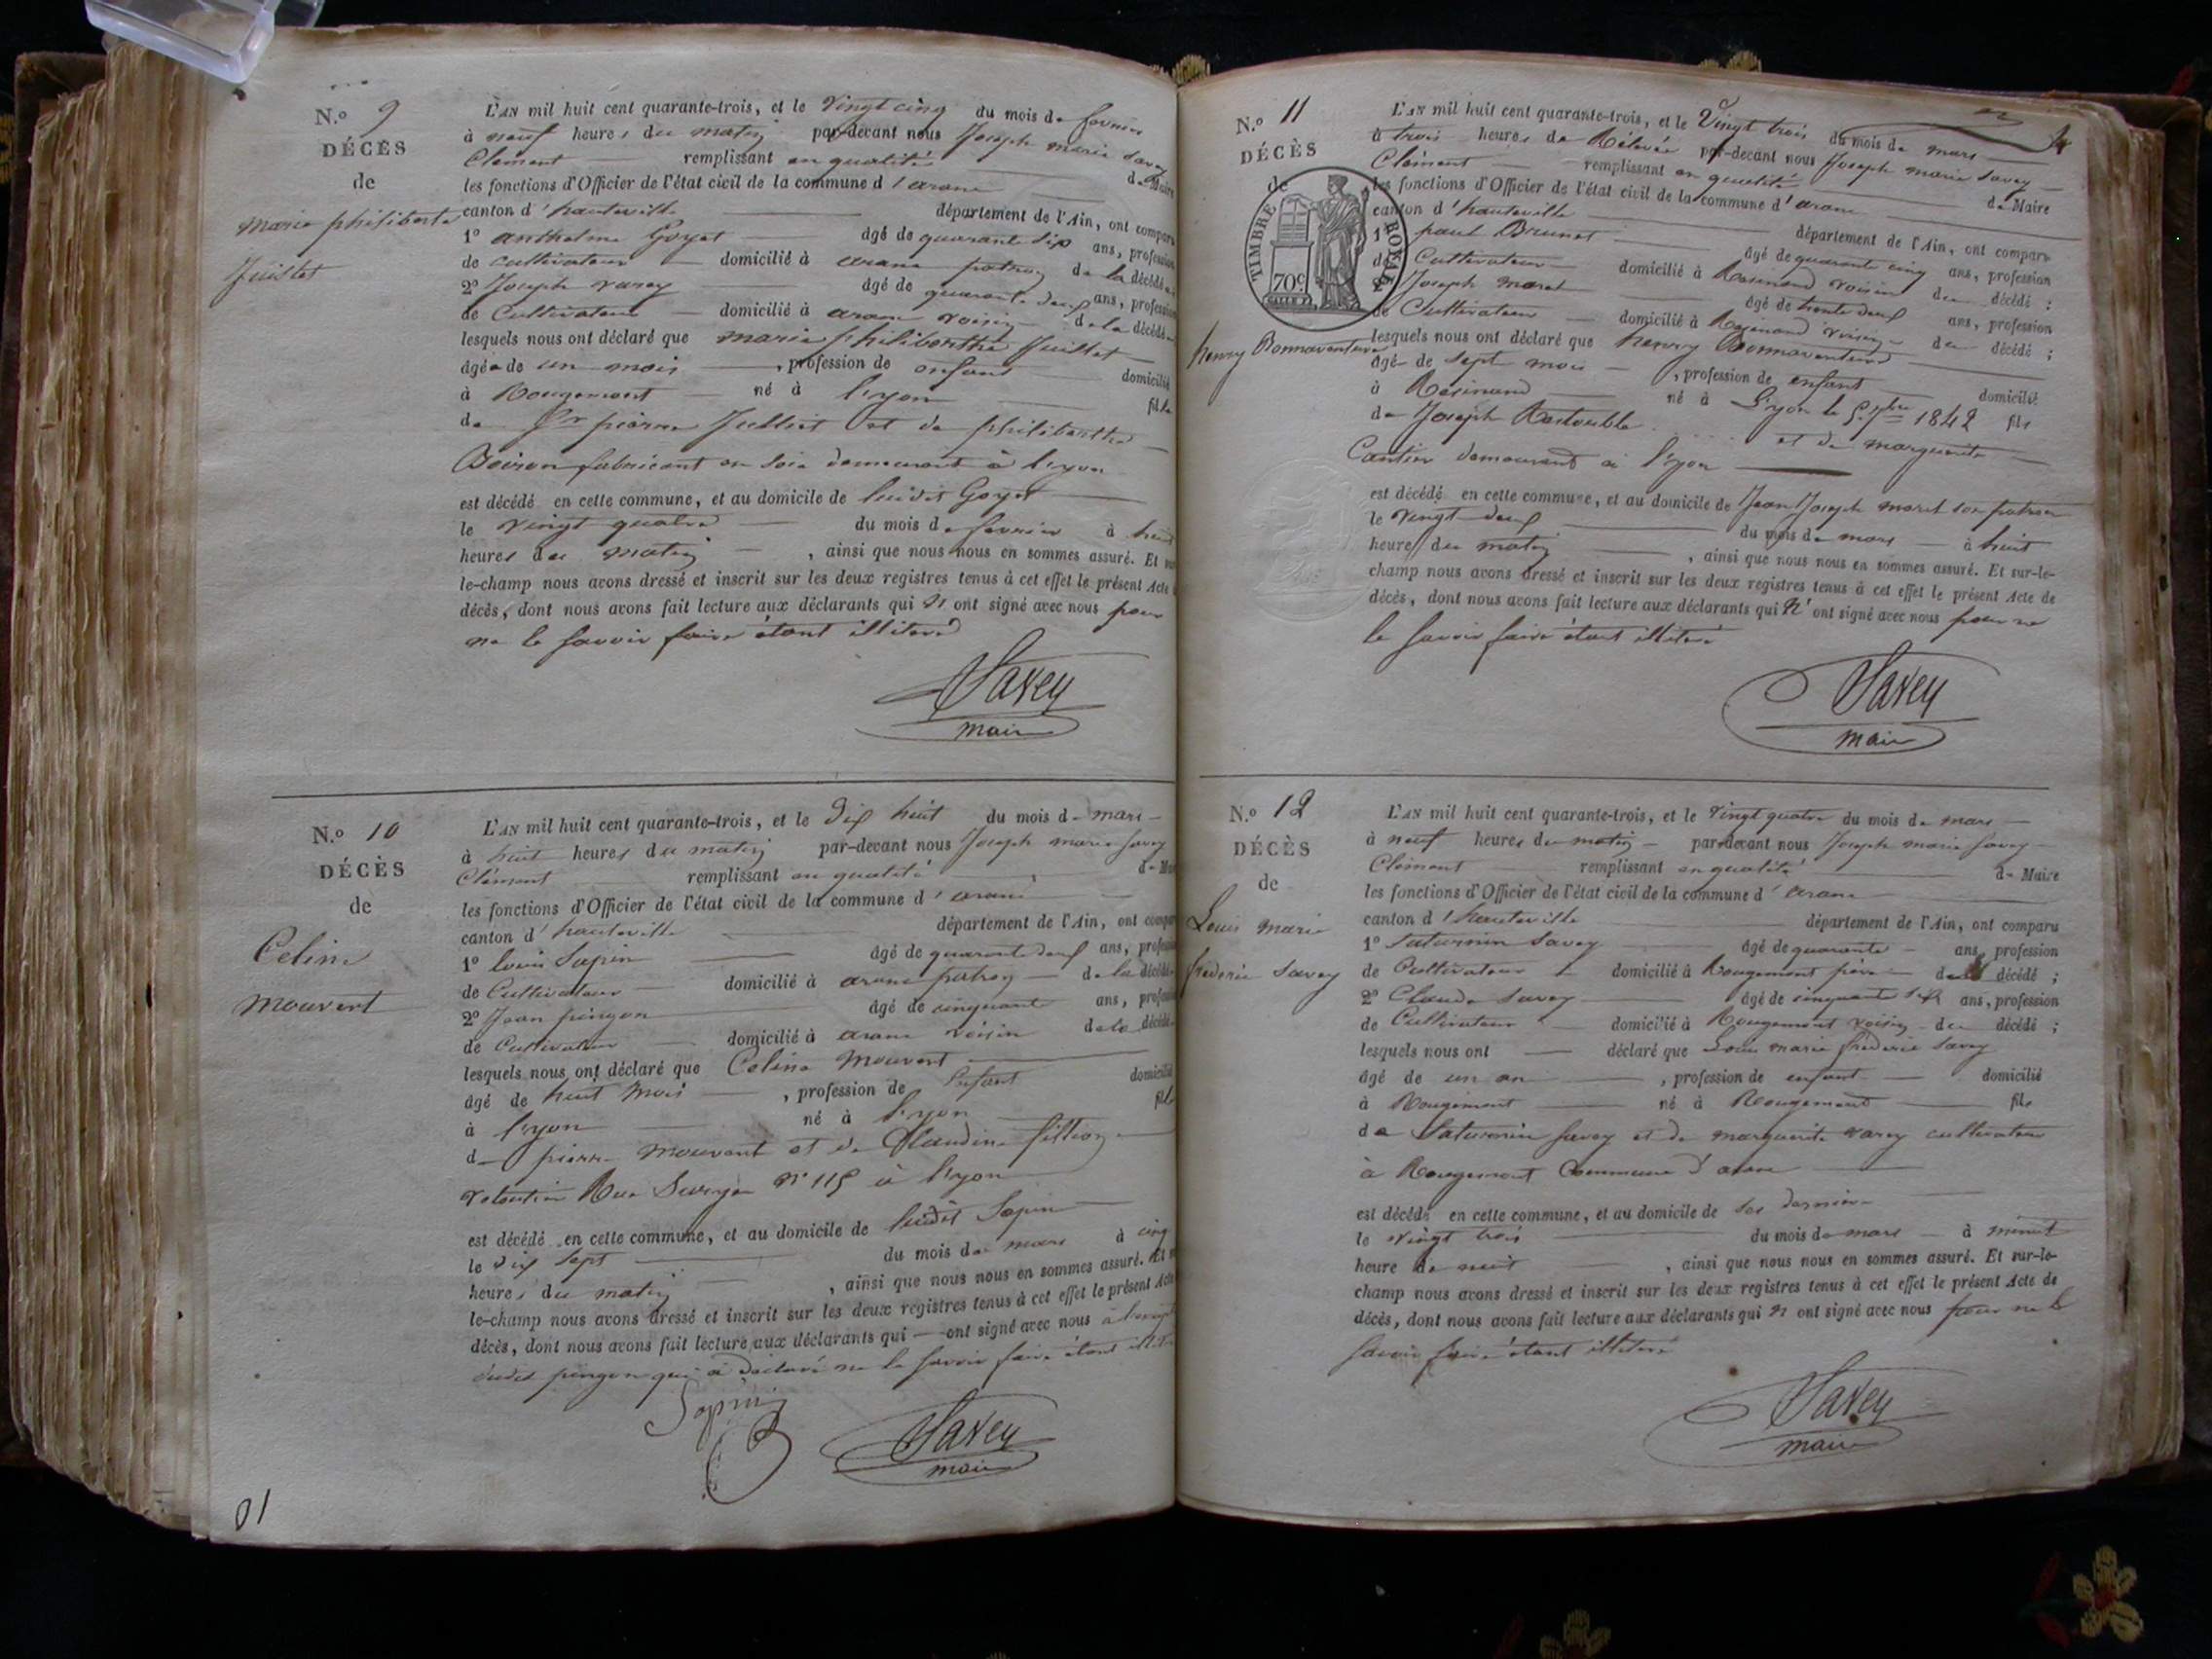 N.º 9
DÉCÈS
de
Marie philiberte
Juillet
L'AN mil huit cent quarante-trois, et le vingt cinq du mois de février
à neuf heures du matin par-devant nous Joseph marie savey
Clément remplissant en qualité de Maire
les fonctions d'Officier de l'état civil de la commune d'arane
canton d'hauteville département de l'Ain, ont comparu
1º anthelme Goyet âgé de quarante six ans, profession
de cultivateur domicilié à arane patron de la décédée
2º Joseph varey âgé de quarante deux ans, profession
de Cultivateur domicilié à arane voisin de la décédée
lesquels nous ont déclaré que marie philiberthe Juillet
âgée de un mois, profession de enfant domicilié
à Rougemont né à lyon fille
de pierre Julliet et de philiberthe
Boiron fabricant en soie demeurant à lyon
est décédé en cette commune, et au domicile de ludit Goyet
le vingt quatre du mois de février à huit
heures du matin, ainsi que nous nous en sommes assuré. Et sur
le-champ nous avons dressé et inscrit sur les deux registres tenus à cet effet le présent Acte
décès, dont nous avons fait lecture aux déclarants qui n'ont signé avec nous pour
ne le savoir faire étant illiteré
Savey
maire
N.º 10
DÉCÈS
de
Celine
Mouvert
L'AN mil huit cent quarante-trois, et le dix huit du mois de mars
à huit heures du matin par-devant nous Joseph marie savey
Clément remplissant en qualité de Maire
les fonctions d'Officier de l'état civil de la commune d'arane
canton d'hauteville département de l'Ain, ont comparu
1º louis Sapin âgé de quarante deux ans, profession
de Cultivateur domicilié à arane patron de la décédée
2º Jean pingon âgé de cinquante ans, profession
de Cultivateur domicilié à arane voisin de la décédée
lesquels nous ont déclaré que Celine Mouvert
âgé de huit Mois, profession de Enfant domicilié
à lyon né à lyon fille
de pierre Mouvant et de Claudine fillion
Rue nº 115 à lyon
est décédé en cette commune, et au domicile de ludit Sapin
le dix sept du mois de mars à cinq
heures du matin, ainsi que nous nous en sommes assuré. Et
le-champ nous avons dressé et inscrit sur les deux registres tenus à cet effet le présent Acte
décès, dont nous avons fait lecture aux déclarants qui ont signé avec nous
dudit pingon qui a déclaré ne le savoir faire étant
Sapin
Savey
maire
01
N.º 11
DÉCÈS
de
TIMBRE ROYAL
70c
henry Bonnaventure
L'AN mil huit cent quarante-trois, et le Vingt trois du mois de mars
à trois heures de Rélevée par-devant nous Joseph marie savey
Clément remplissant en qualité de Maire
les fonctions d'Officier de l'état civil de la commune d'arane
canton d'hauteville département de l'Ain, ont comparu
1º paul Brunet âgé de quarante cinq ans, profession
de Cultivateur domicilié à Résinand voisin du décédé ;
Joseph maret âgé de trente deux ans, profession
de Cultivateur domicilié à Résinand voisin du décédé ;
lesquels nous ont déclaré que henry Bonnaventure
âgé de sept mois, profession de enfant domicilié
à Résinand né à Lyon le 1842 fils
de Joseph Rastouble et de marguerite
Cantier demeurand à lyon
est décédé en cette commune, et au domicile de Jean Joseph maret son patron
le vingt deux du mois de mars à huit
heure du matin, ainsi que nous nous en sommes assuré. Et sur-le-
champ nous avons dressé et inscrit sur les deux registres tenus à cet effet le présent Acte de
décès, dont nous avons fait lecture aux déclarants qui n'ont signé avec nous pour ne
le savoir faire étant illiteré
Savey
maire
N.º 12
DÉCÈS
de
Louis marie
fréderic savey
L'AN mil huit cent quarante-trois, et le vingt quatre du mois de mars
à neuf heures du matin par-devant nous Joseph marie savey
Clément remplissant en qualité de Maire
les fonctions d'Officier de l'état civil de la commune d'arane
canton d'hauteville département de l'Ain, ont comparu
1º saturnin Savey âgé de quarante ans, profession
de Cultivateur domicilié à Rougemont père du décédé ;
2º Claude Savey âgé de cinquante six ans, profession
de Cultivateur domicilié à Rougemont voisin du décédé ;
lesquels nous ont déclaré que Louis marie fréderic savey
âgé de un an, profession de enfant domicilié
à Rougemont né à Rougemont fils
de Saturnin savey et de marguerite varey cultivateur
à Rougemont Commune d'arane
est décédé en cette commune, et au domicile de ses dernier
le vingt trois du mois de mars à minuit
heure de nuit, ainsi que nous nous en sommes assuré. Et sur-le-
champ nous avons dressé et inscrit sur les deux registres tenus à cet effet le présent Acte de
décès, dont nous avons fait lecture aux déclarants qui n'ont signé avec nous pour ne le
savoir faire étant illiteré
Savey
maire